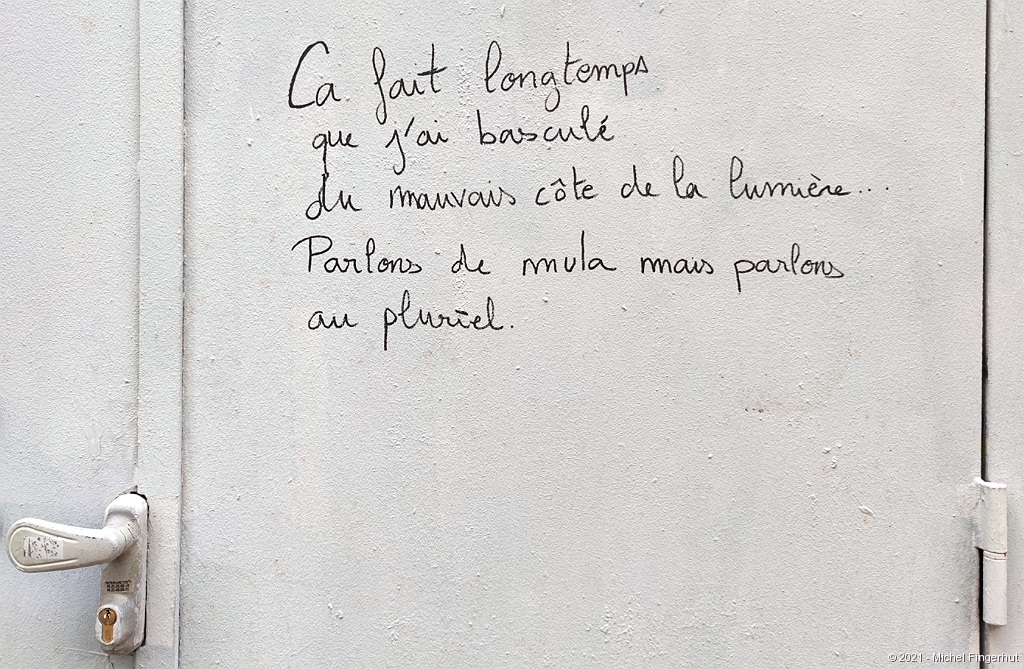 Ca fait longtemps
que j'ai basculé
du mauvais côte de la lumière...
Parlons de mula mais parlons
au pluriel.
© 2021 - Michel Fingerhut